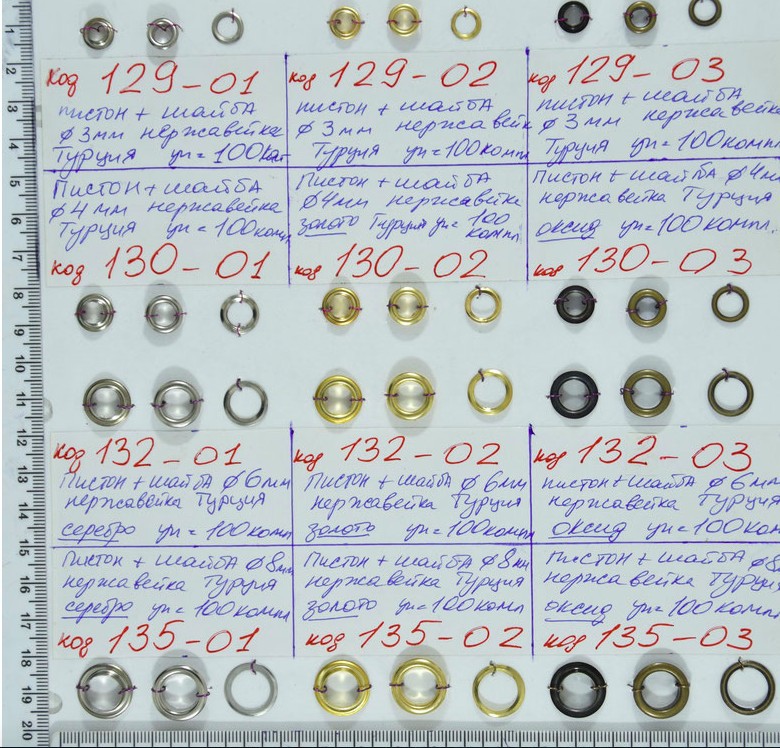 код 129-01
пистон + шайбА
ф 3мм нержавейка
Турция уп = 100
код 129-02
пистон + шайбА
ф 3мм нержавейк
Турция уп = 100 компл
код 129-03
пистон + шайбА
ф 3мм нержавейка
Турция уп = 100 компл
Пистон + шайбА
ф 4мм нержавейка
Турция уп = 100 компл
код 130-01
Пистон + шайбА
ф4мм нержавейка
золото Турция уп = 100
компл
код 130-02
Пистон + шайбА ф 4мм
нержавейка Турция
оксид уп = 100 компл.
код 130-03
код 132-01
Пистон + шайбА ф 6мм
нержавейка Турция
серебро уп = 100 компл
код 132-02
Пистон + шайбА ф 6мм
нержавейка Турция
золото уп = 100 компл
код 132-03
пистон + шайбА ф 6мм
нержавейка Турция
оксид уп = 100 ком
Пистон + шайбА ф 8мм
нержавейка Турция
серебро уп = 100 компл
код 135-01
Пистон + шайбА ф 8мм
нержавейка Турция
золото уп = 100 компл
код 135-02
Пистон + шайбА ф 8
нержавейка Турция
оксид уп = 100 компл
код 135-03
1
2
3
4
5
6
7
8
9
10
11
12
13
14
15
16
17
18
19
20